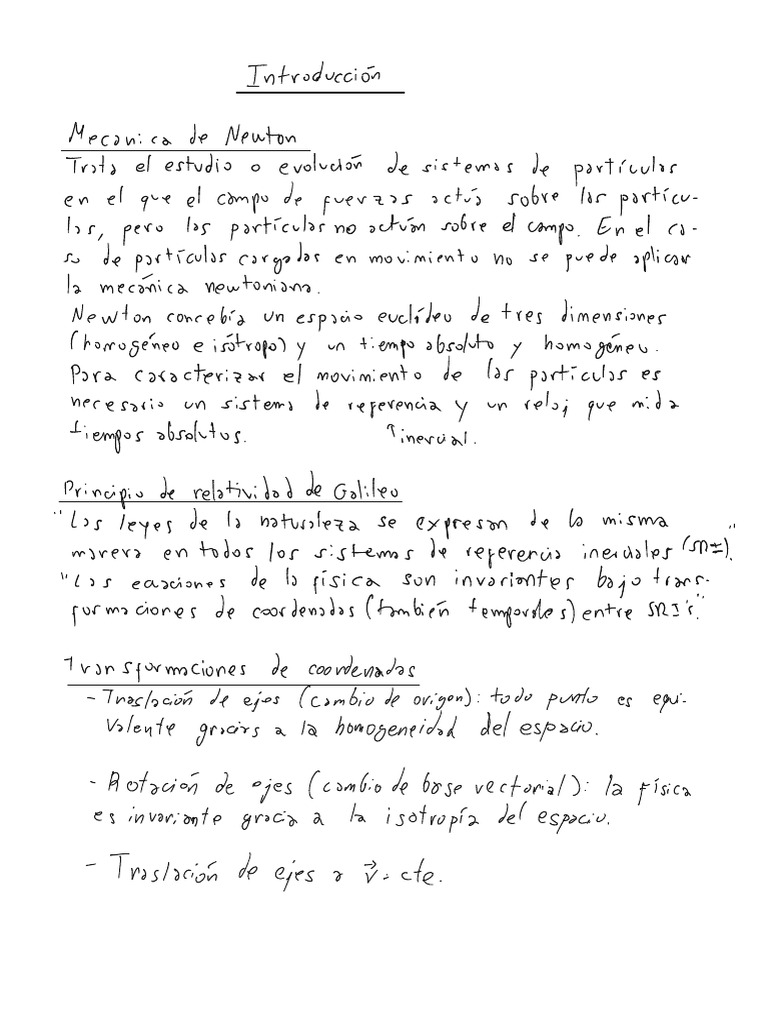 Introducción
Mecánica de Newton
Trata el estudio o evolución de sistemas de partículas
en el que el campo de fuerzas actúa sobre las partícu-
las, pero las partículas no actúan sobre el campo. En el ca-
so de partículas cargadas en movimiento no se puede aplicar
la mecánica newtoniana.
Newton concebía un espacio euclídeo de tres dimensiones
(homogéneo e isótropo) y un tiempo absoluto y homogéneo.
Para caracterizar el movimiento de las partículas es
necesario un sistema de referencia y un reloj que mida
tiempos absolutos. ↑inercial.
Principio de relatividad de Galileo
"Las leyes de la naturaleza se expresan de la misma
manera en todos los sistemas de referencia inerciales (SRI)."
"Las ecuaciones de la física son invariantes bajo trans-
formaciones de coordenadas (también temporales) entre SRI's"
Transformaciones de coordenadas
- Traslación de ejes (cambio de origen): todo punto es equi-
valente gracias a la homogeneidad del espacio.
- Rotación de ejes (cambio de base vectorial): la física
es invariante gracia a la isotropía del espacio.
- Traslación de ejes a v⃗ = cte.